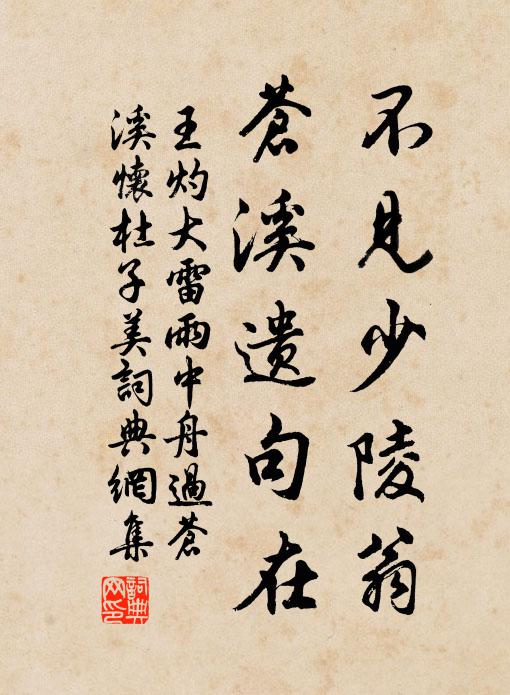 不見少陵翁
蒼溪遺句在
王灼大雷雨中舟過蒼
溪懷杜子美詞典網集
詞典网印